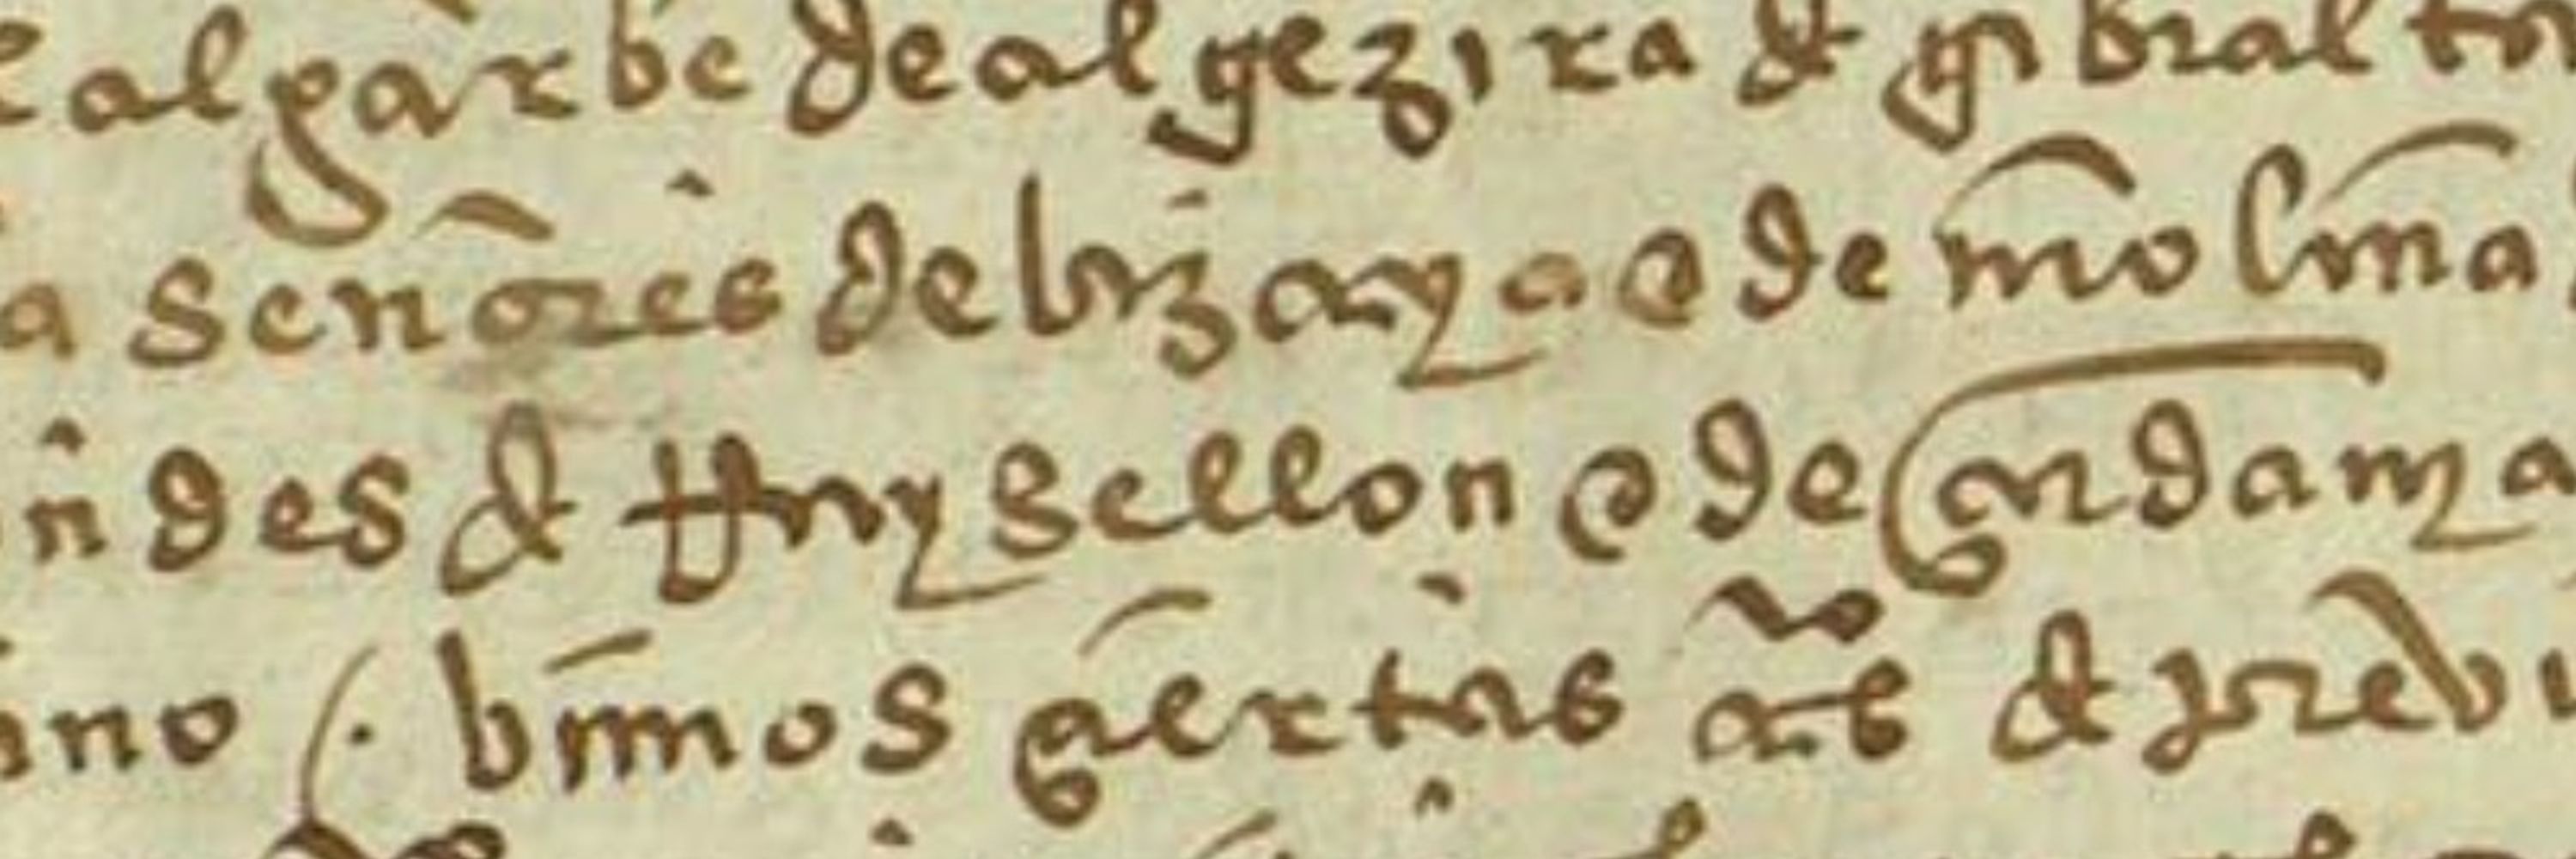 e algarbe de algezira & gibraltar
a señores de bizcaya e de molina
ndes & Ruysellon e de cerdania
ano bimos çiertas & proui